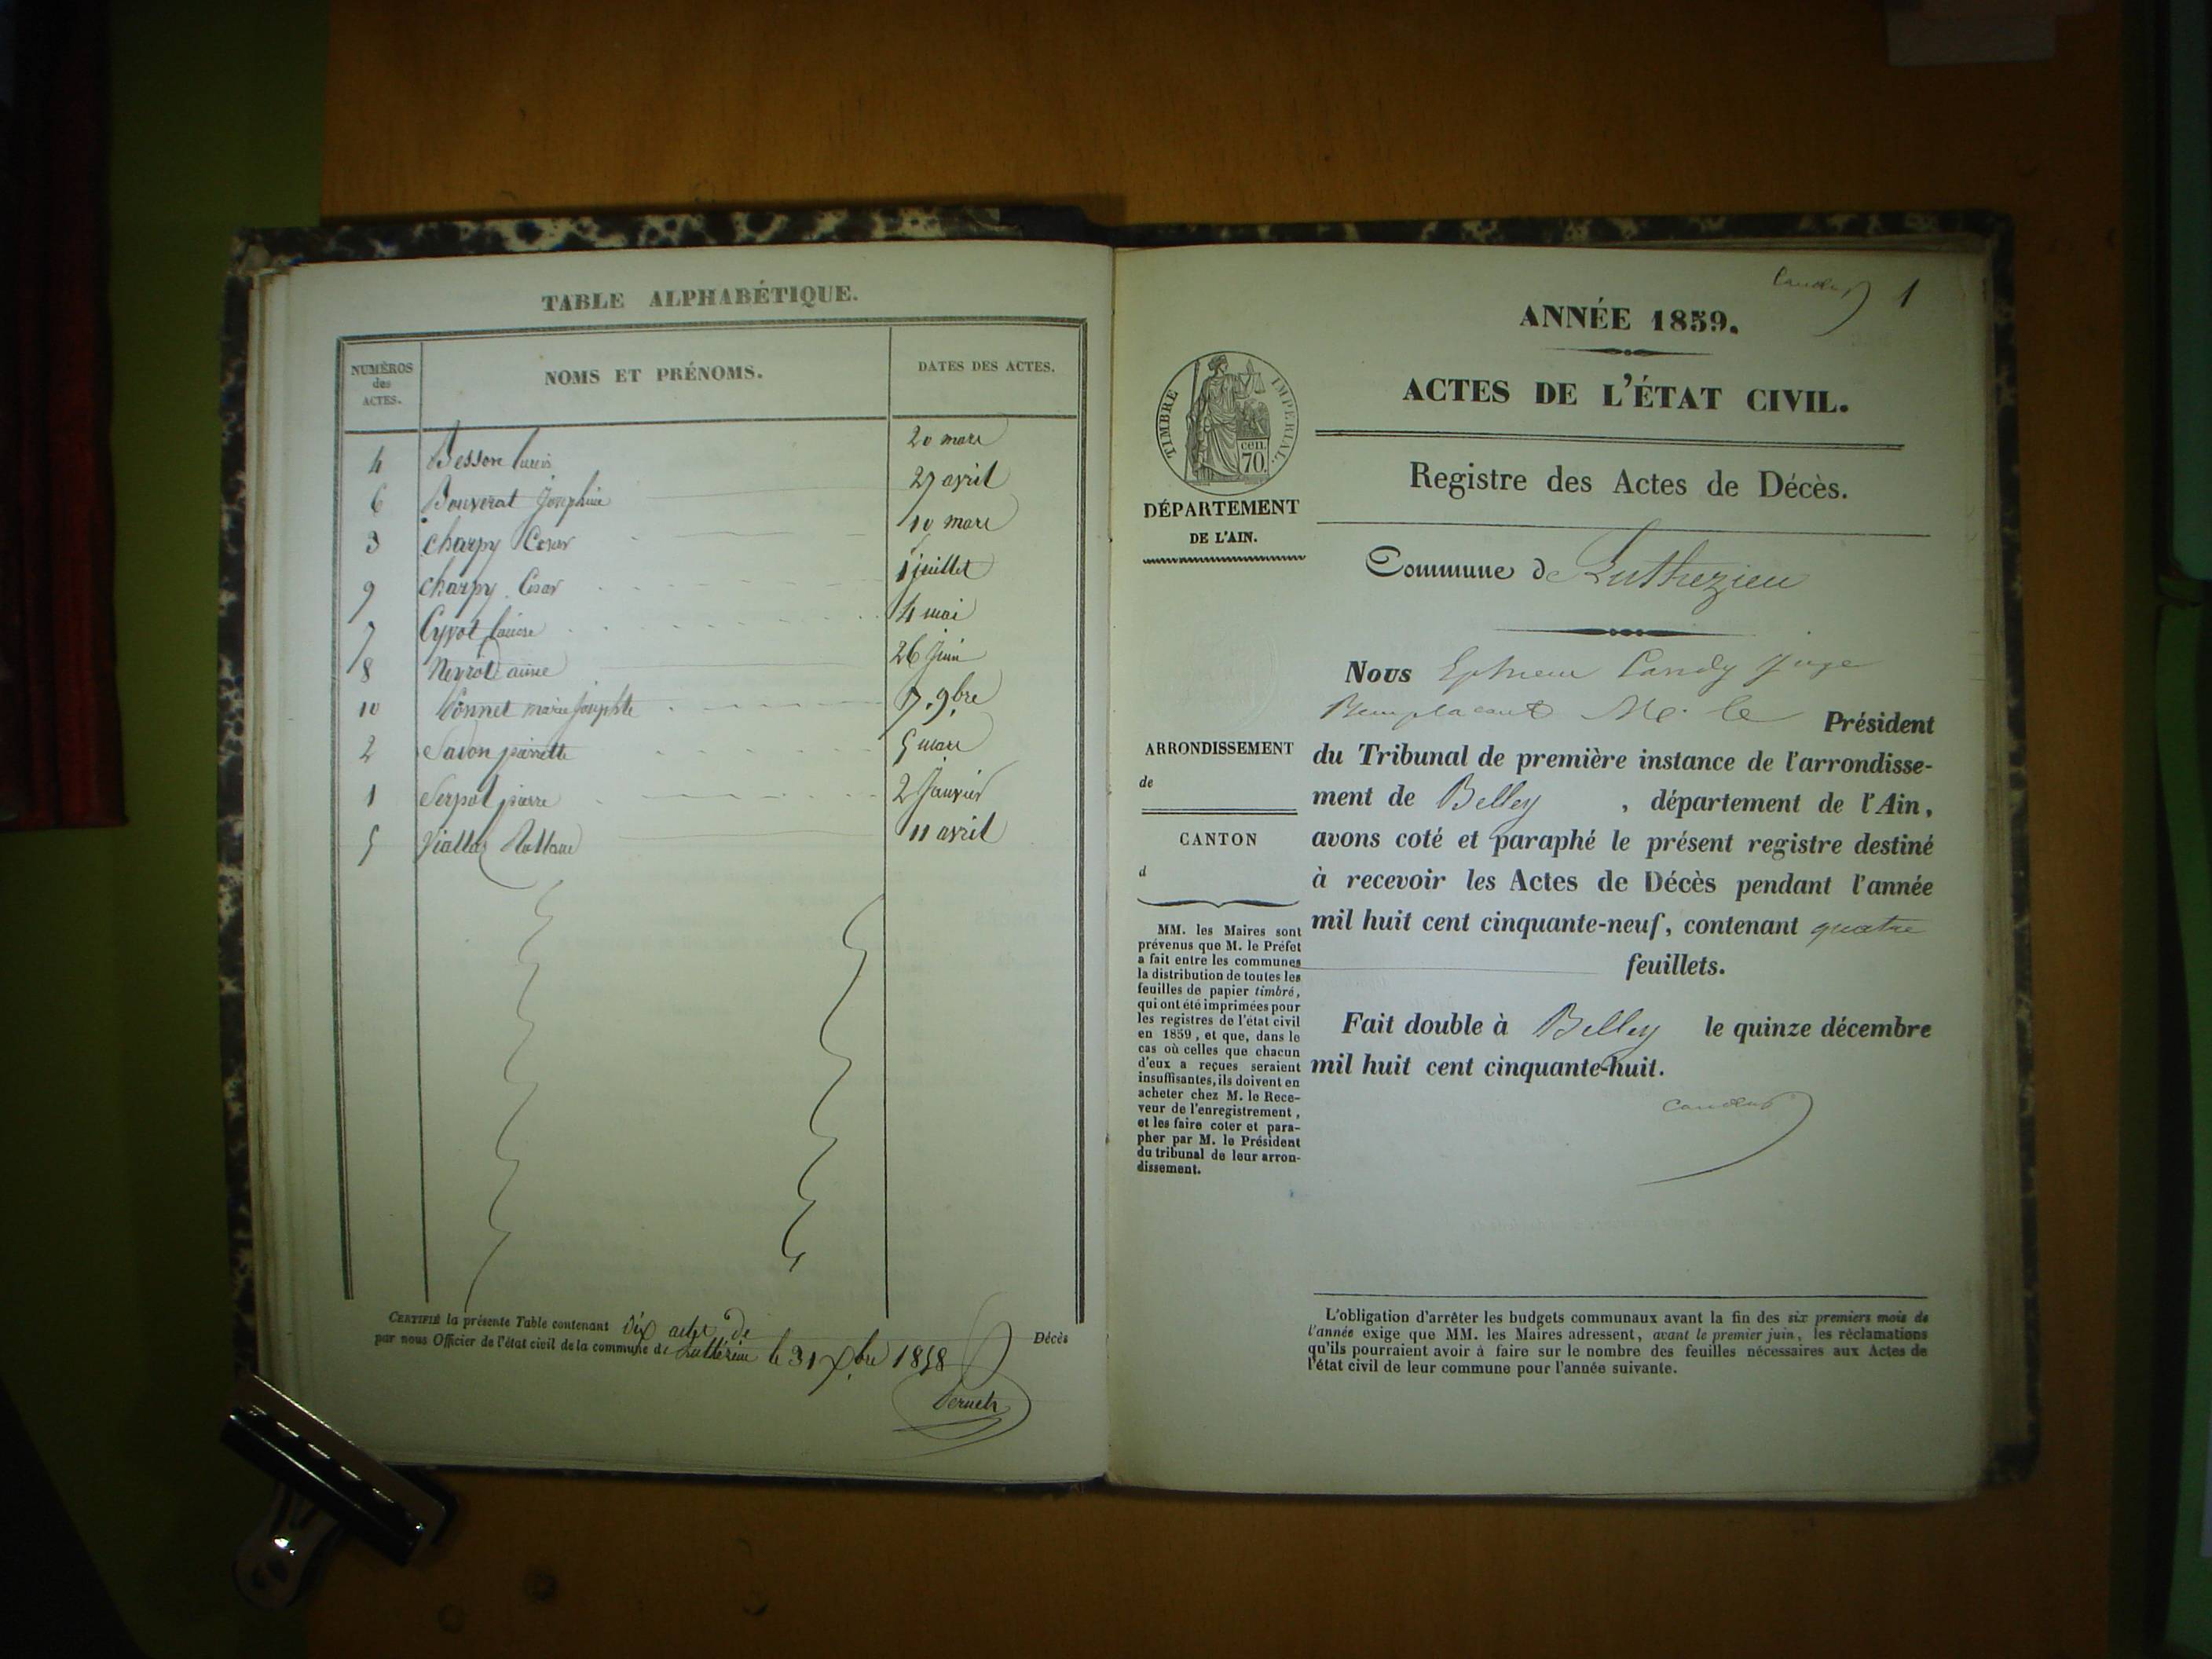 TABLE ALPHABÉTIQUE.
NUMÉROS
des
ACTES.
NOMS ET PRÉNOMS.
DATES DES ACTES.
4 Besson 20 mars
6 Bouverat Josephine 27 avril
3 Charpy Cesar 10 mars
9 Charpy Cesar 1 juillet
7 Cyvot 14 mai
8 Neyrod anne 26 Juin
10 marie Josephte 7. 9.bre
2 Savon pierrette 5 mars
1 Serpol pierre 2 Janvier
5 11 avril
CERTIFIÉ la présente Table contenant dix actes de Décès
par nous Officier de l'état civil de la commune de Luthézieu le 31 Xbre 1858
1
ANNÉE 1859.
ACTES DE L'ÉTAT CIVIL.
TIMBRE IMPÉRIAL.
cen.
70.
DÉPARTEMENT
DE L'AIN.
Registre des Actes de Décès.
Commune de Luthezieu
Nous Candy Juge
Remplacant Mr. le Président
du Tribunal de première instance de l'arrondisse-
ment de Belley, département de l'Ain,
avons coté et paraphé le présent registre destiné
à recevoir les Actes de Décès pendant l'année
mil huit cent cinquante-neuf, contenant quatre
feuillets.
Fait double à Belley le quinze décembre
mil huit cent cinquante-huit.
ARRONDISSEMENT
de
CANTON
d
MM. les Maires sont
prévenus que M. le Préfet
a fait entre les communes
la distribution de toutes les
feuilles de papier timbré,
qui ont été imprimées pour
les registres de l'état civil
en 1859, et que, dans le
cas où celles que chacun
d'eux a reçues seraient
insuffisantes, ils doivent en
acheter chez M. le Rece-
veur de l'enregistrement,
et les faire coter et para-
pher par M. le Président
du tribunal de leur arron-
dissement.
L'obligation d'arrêter les budgets communaux avant la fin des six premiers mois de
l'année exige que MM. les Maires adressent, avant le premier juin, les réclamations
qu'ils pourraient avoir à faire sur le nombre des feuilles nécessaires aux Actes de
l'état civil de leur commune pour l'année suivante.